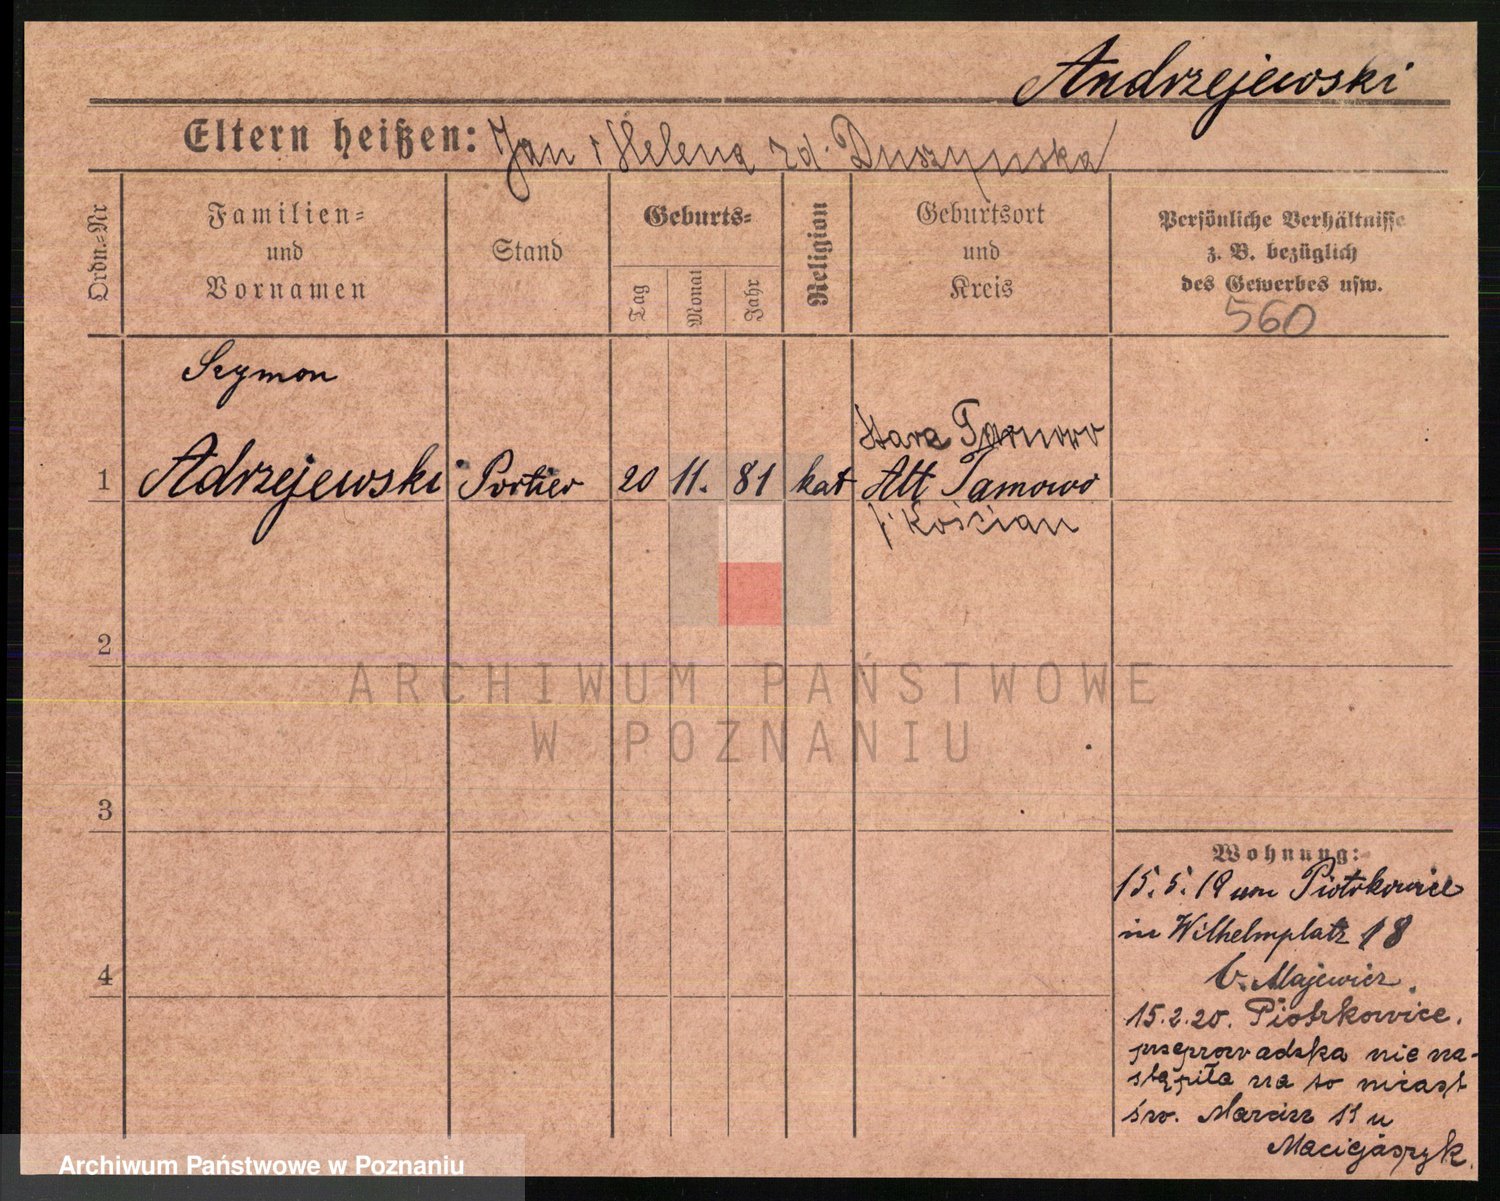 Andrzejewski
Eltern heißen: Jan i Helena rd. Duszynska
Ordn.-Nr
Familien-
und
Vornamen
Stand
Geburts-
Tag
Monat
Jahr
Religion
Geburtsort
und
Kreis
Persönliche Verhältnisse
z. B. bezüglich
des Gewerbes usw.
560
Szymon
Stara Tarnowo
1 Adrzejewski Portier 20 11. 81 kat Alt Tarnowo
Kościan
2
3
4
ARCHIWUM PAŃSTWOWE
W POZNANIU
Wohnung:
15. 5. 19 von Piotrkowice
in Wilhelmplatz 18
b. Majewicz.
15.2.20. Piotrkowice.
przeprowadzka nie na-
stąpiła na to miast
św. Marcin 11 u
Maciejaszyk.
Archiwum Państwowe w Poznaniu